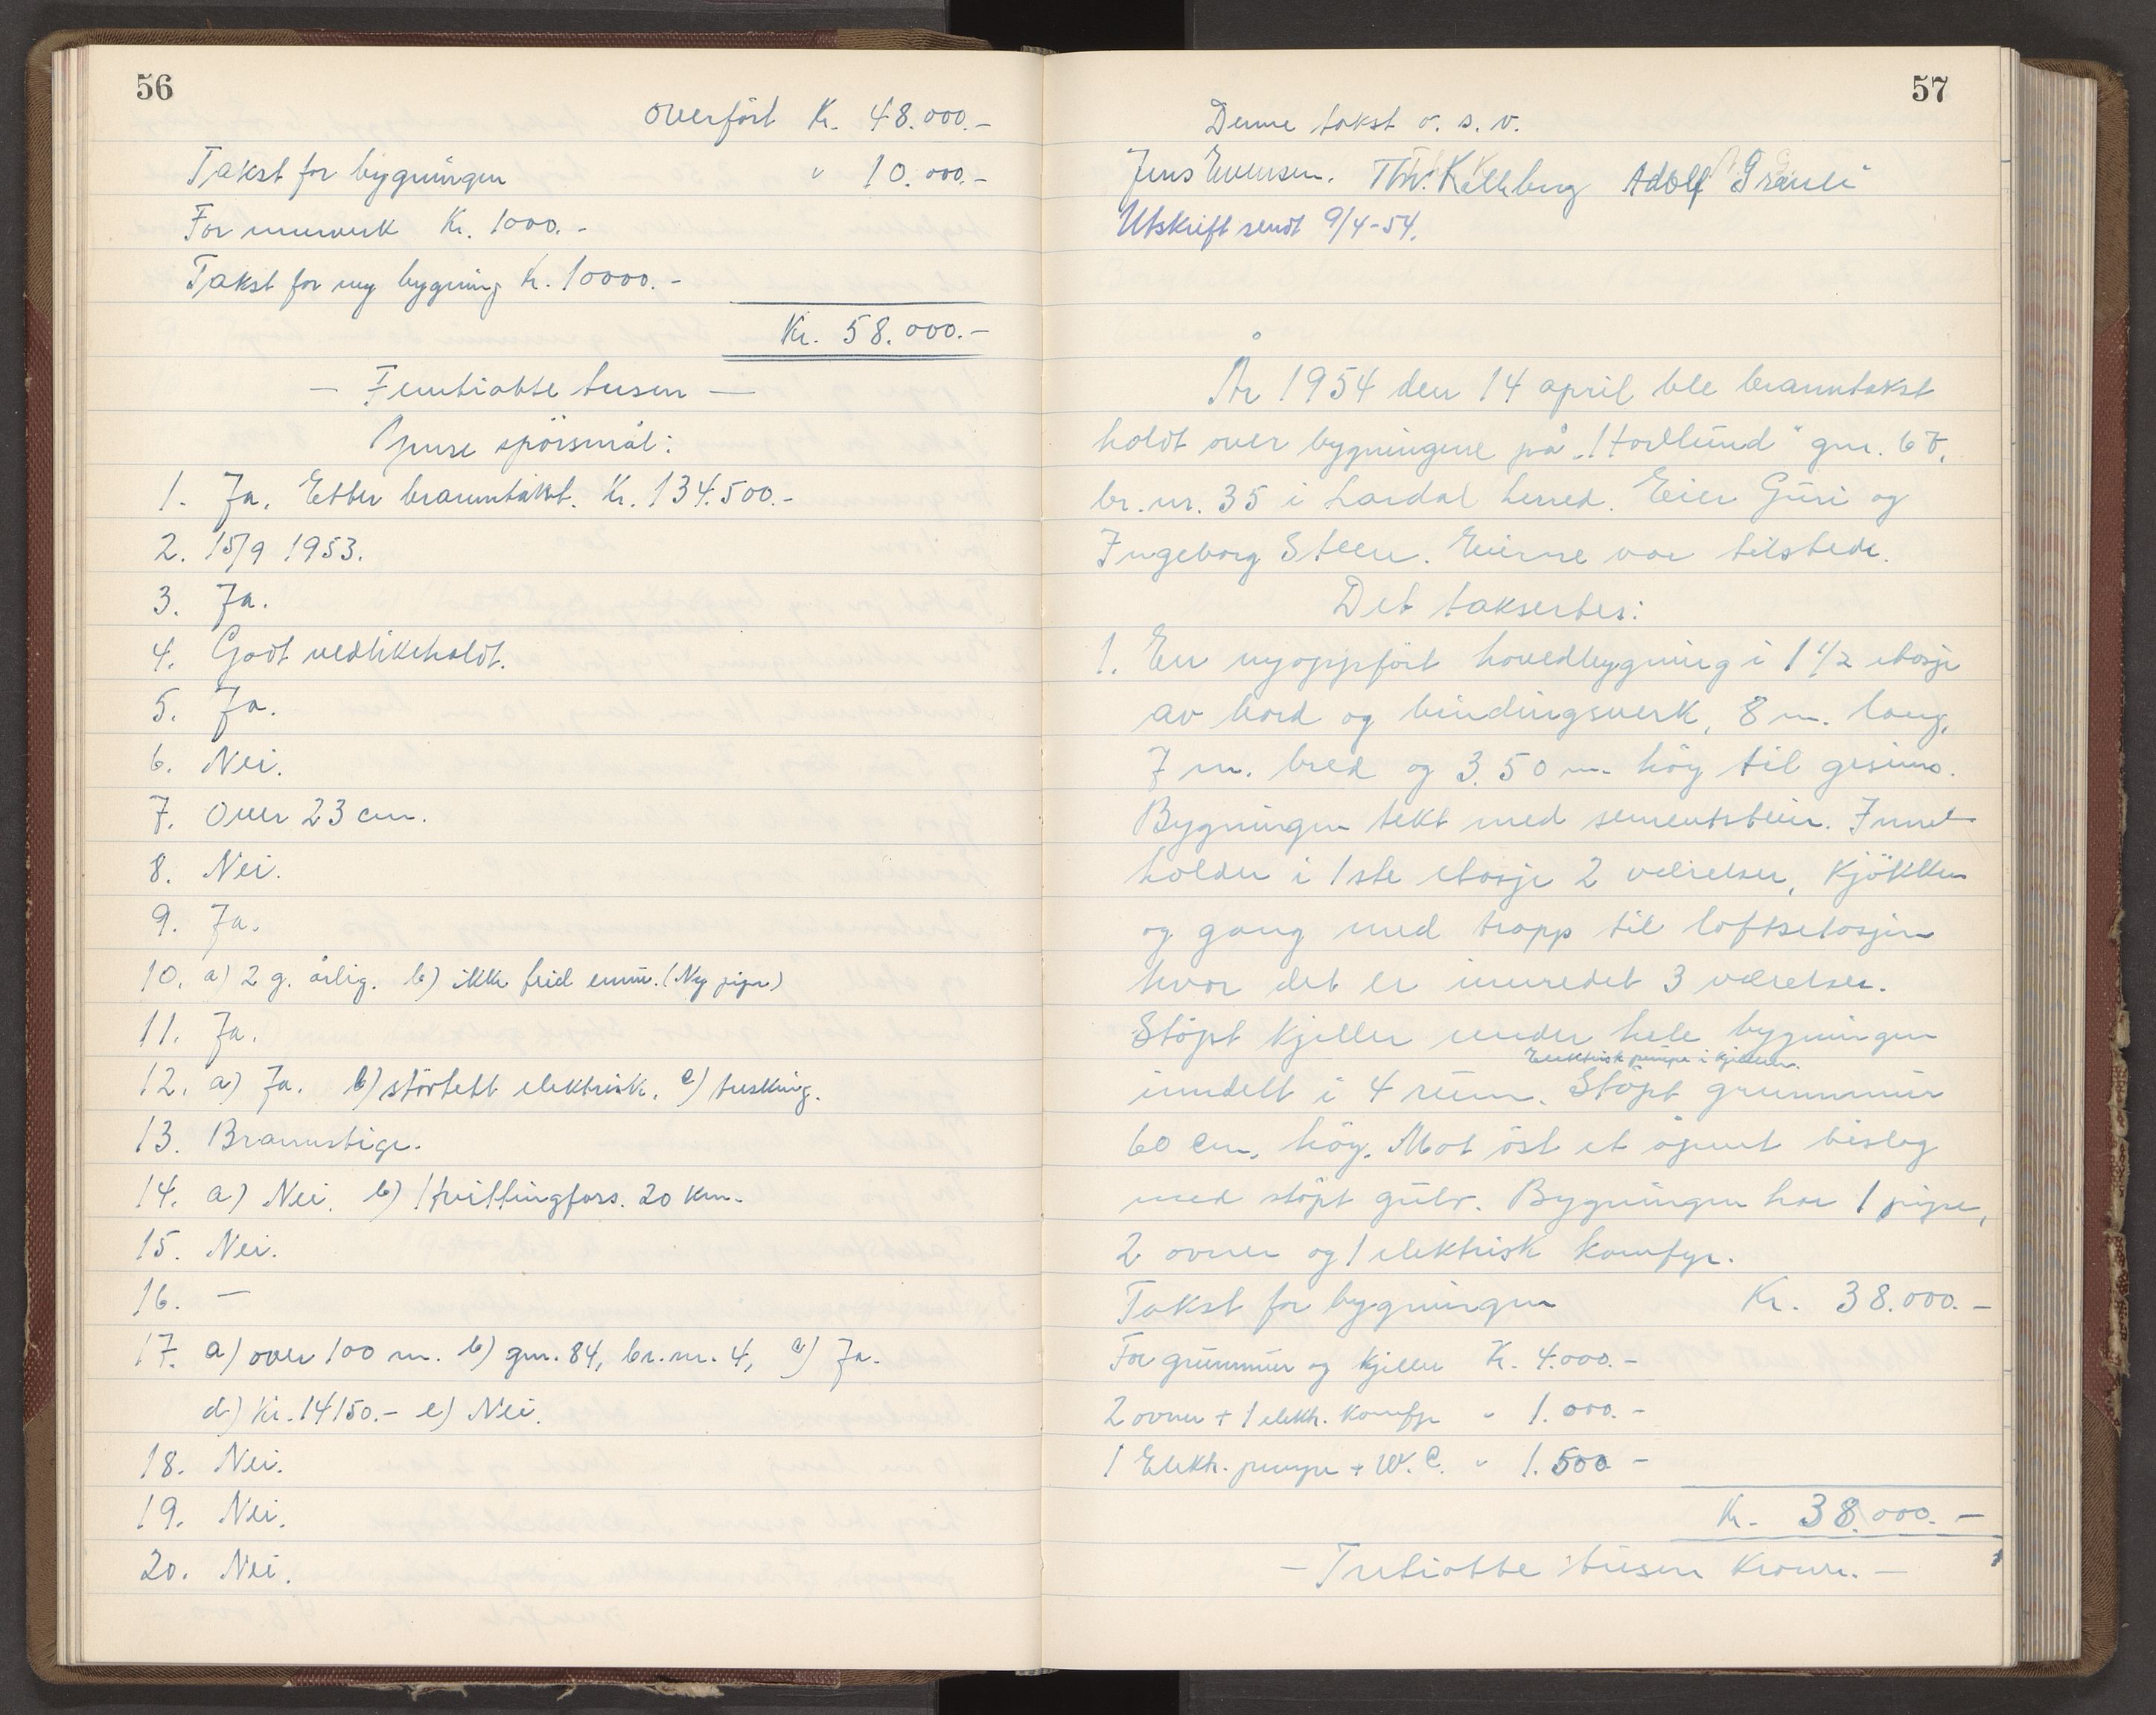 56
Overført Kr. 48.000.-
Takst for bygningen " 10.000.-
For murverk Kr. 1000.-
Takst for ny bygning Kr. 10000.-
Kr. 58.000.-
- Femtiotte tusen -
Ymse spörsmål:
1. Ja. Etter branntakst. Kr. 134.500.-
2. 15/9 1953.
3. Ja.
4. Godt vedlikeholdt.
5. Ja.
6. Nei.
7. Over 23 cm.
8. Nei.
9. Ja.
10. a) 2 g. årlig. b) ikke feid ennu. (Ny pipe)
11. Ja.
12. a) Ja. b) störtebt elektrisk. c) tresking.
13. Brannstige.
14. a) Nei. b) Hvittingfoss. 20 km.
15. Nei.
16. —
17. a) over 100 m. b) gnr. 84, br.nr. 4, c) Ja.
d) Kr. 14150.- e) Nei.
18. Nei.
19. Nei.
20. Nei.
57
Denne takst o. s. v.
Jens Evensen. Thv. Kallberg Adolf Granli
Utskrift sendt 9/4-54.
År 1954 den 14 april ble branntakst
holdt over bygningene på "Hovlund" gnr. 67,
br.nr. 35 i Lardal herred. Eier Guri og
Ingeborg Steen. Eierne var tilstede.
Det taksertes:
1. En nyoppfört hovedbygning i 1 1/2 etasje
av bord og bindingsverk, 8 m. lang,
7 m. bred og 3.50 m. höy til gesims.
Bygningen tekt med sementstein. Inne-
holder i 1ste etasje 2 værelser, kjökken
og gang med trapp til loftsetasjen
hvor det er innredet 3 værelser.
Stöpt kjeller under hele bygningen
Elektrisk pumpe i kjelleren.
inndelt i 4 rum. Stöpt grunnmur
60 cm. höy. Mot öst et åpent bislag
med stöpt gulv. Bygningen har 1 pipe,
2 ovner og 1 elektrisk komfyr.
Takst for bygningen Kr. 38.000.-
For grunnmur og kjeller Kr. 4.000.-
2 ovner + 1 elektr. komfyr " 1.000.-
1 Elektr. pumpe + W.C. " 1.500 -
Kr. 38.000.-
- Trettiotte tusen kroner. -